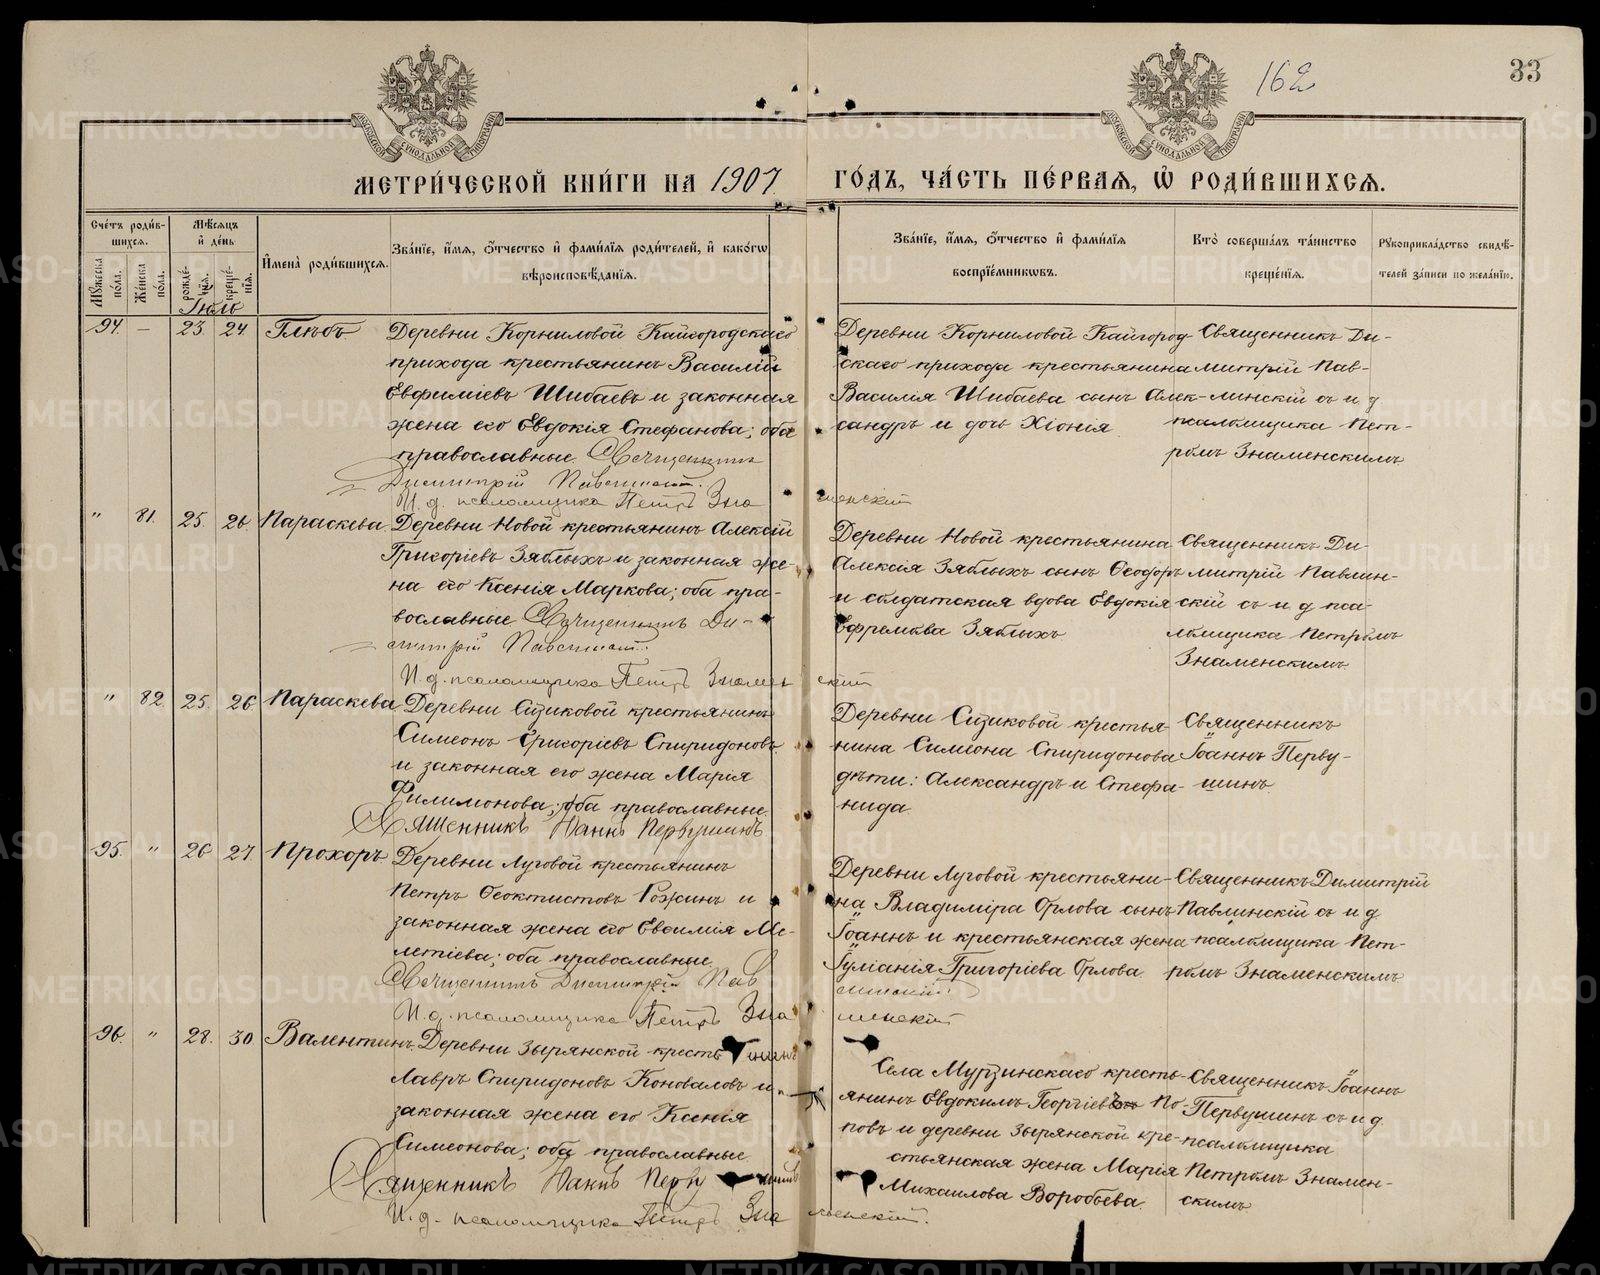 162
33
МЕТРИ́ЧЕСКОЙ КНИ́ГИ НА 1907
ГО́ДЪ, ЧА́СТЬ ПЕ́РВАЯ, Ѡ҆ РОДИ́ВШИХСЯ.
Сче́тъ роди́в-
шихся.
Мѣ́сяцъ
и҆ де́нь
Мꙋ́жеска по́ла.
Же́нска по́ла.
рожде́-нїя.
креще́-нїя.
И҆мена̀ роди́вшихся.
Зва́нїе, и҆́мя, о҆́тчество и҆ фами́лїя роди́телей, и҆ како́гѡ
вѣроисповѣ́данїя.
Зва́нїе, и҆́мя, о҆́тчество и҆ фами́лїя
воспрїе́мникѡвъ.
Кто̀ соверша́лъ та́инство
креще́нїя.
Рꙋкоприкла́дство свидѣ́-
телей за́писи по жела́нїю.
Іюль
94. – 23. 24. Глѣбъ
Деревни Корниловой Кайгородскаго
прихода крестьянинъ Василій
Евфиміевъ Шибаевъ и законная
жена его Евдокія Стефанова; оба
православные. Священникъ
Димитрій Павлинскій.
И. д. псаломщика Петръ Знаменскій
Деревни Корниловой Кайгород
скаго прихода крестьянина
Василія Шибаева сынъ Алек-
сандръ и дочь Хіонія
Священникъ Ди-
митрій Пав-
линскій съ и. д.
псаломщика Пет-
ромъ Знаменскимъ
" 81. 25. 26. Параскева.
Деревни Новой крестьянинъ Алексій
Григоріевъ Зяблыхъ и законная же-
на его Ксенія Маркова; оба пра-
вославные Священникъ Ди-
митрій Павлинскій.
И. д. псаломщика Петръ Знаменскій
Деревни Новой крестьянина
Алексія Зяблыхъ сынъ Ѳеодоръ
и солдатская вдова Евдокія
Ефремова Зяблыхъ
Священникъ Ди-
митрій Павлин-
скій съ и. д. пса-
ломщика Петромъ
Знаменскимъ.
" 82. 25. 26 Параскева
Деревни Сизиковой крестьянинъ
Симеонъ Григоріевъ Спиридоновъ
и законная его жена Марія
Филимонова; оба православные.
Священникъ Іоаннъ Первушинъ
Деревни Сизиковой крестья-
нина Симеона Спиридонова
дѣти: Александръ и Стефа-
нида.
Священникъ
Іоаннъ Перву-
шинъ
95. " 26 27. Прохоръ.
Деревни Луговой крестьянинъ
Петръ Ѳеоктистовъ Рожинъ и
законная жена его Евѳимія Ме-
летіева; оба православные
Священникъ Димитрій Павлинскій.
И. д. псаломщика Петръ Знаменскій
Деревни Луговой крестьяни-
на Владиміра Орлова сынъ
Іоаннъ и крестьянская жена
Іуліанія Григоріева Орлова
Священникъ Димитрій
Павлинскій съ и. д.
псаломщика Пет-
ромъ Знаменскимъ
96. " 28. 30 Валентинъ.
Деревни Зырянской крестьянинъ
Лавръ Спиридоновъ Коноваловъ и
законная жена его Ксенія
Симеонова; оба православные
Священникъ Іоаннъ Первушинъ
И. д. псаломщика Петръ Знаменскій.
Села Мурзинскаго кресть-
янинъ Евдокимъ Георгіевъ По-
повъ и деревни Зырянской кре-
стьянская жена Марія
Михаилова Воробьева.
Священникъ Іоаннъ
Первушинъ съ и. д.
псаломщика
Петромъ Знамен-
скимъ
METRIKI.GASO-URAL.RU